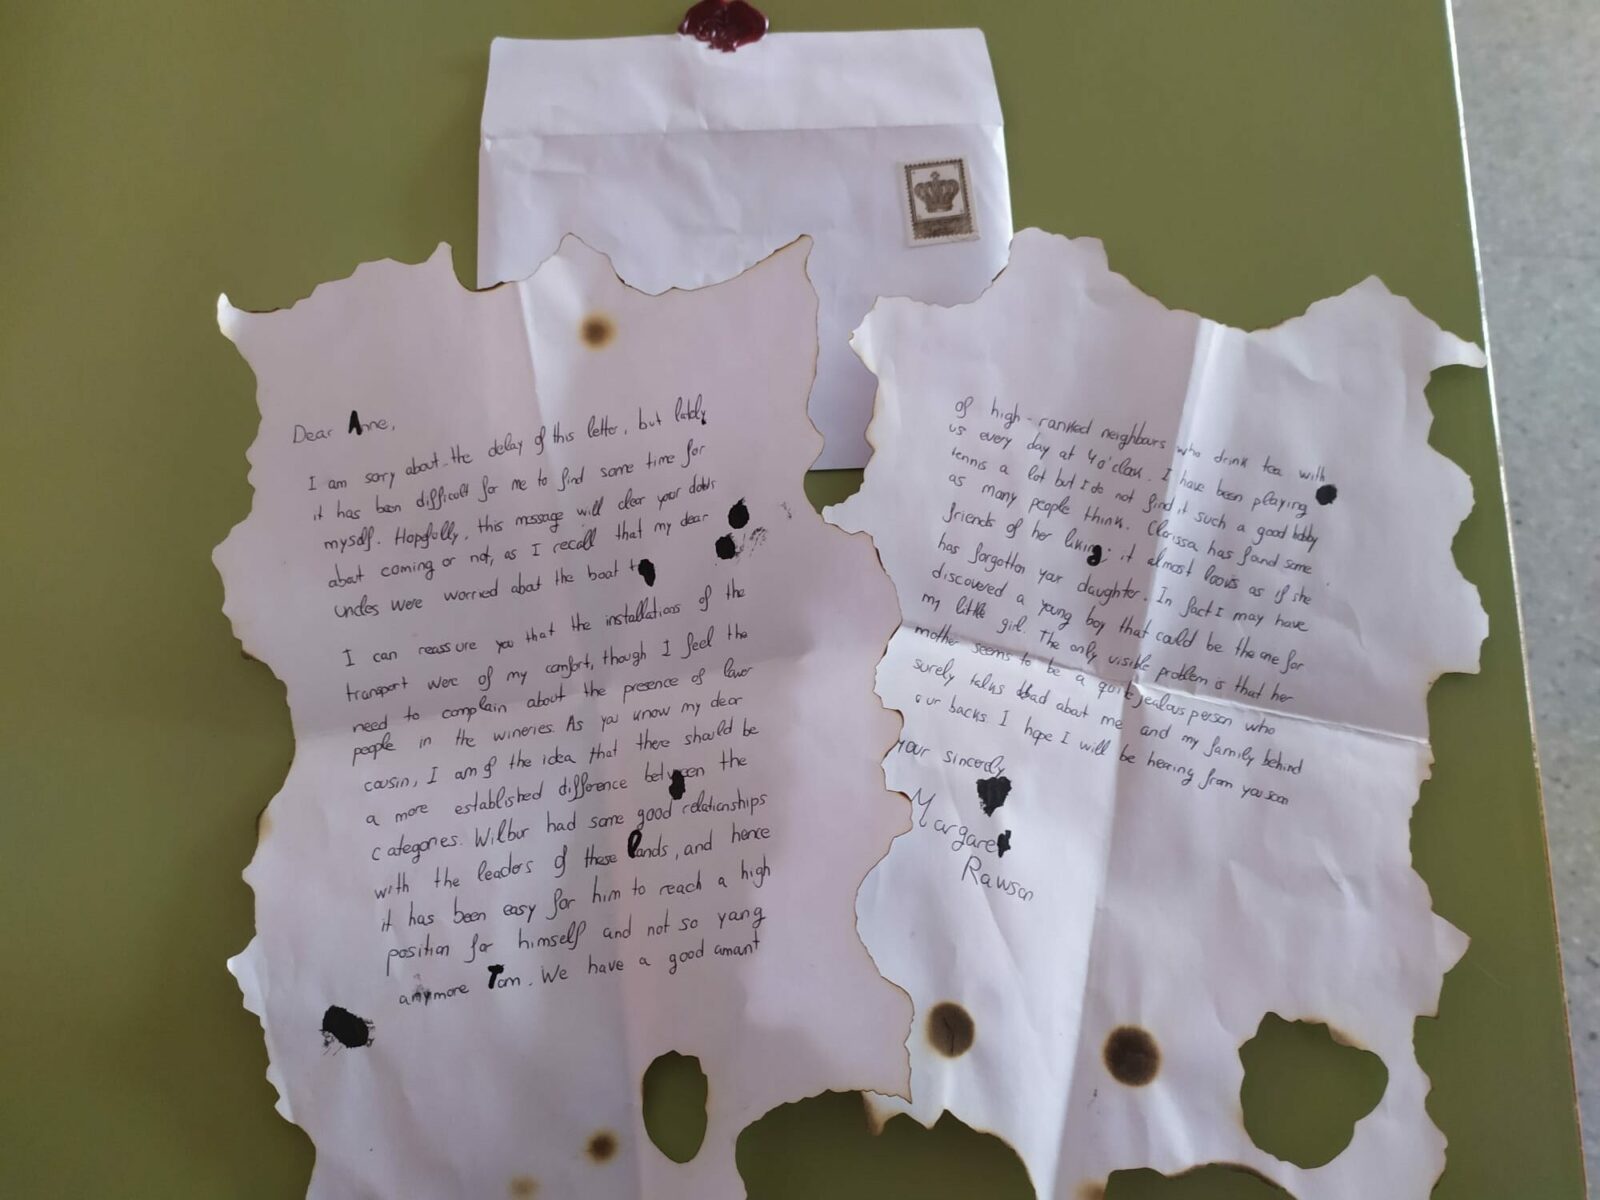 Dear Anne,
I am sorry about the delay of this letter, but lately
it has been difficult for me to find some time for
myself. Hopefully, this message will clear your dobts
about coming or not, as I recall that my dear
uncles were worried about the boat
I can reassure you that the installations of the
transport were of my comfort, though I feel the
need to complain about the presence of lower
people in the wineries. As you know my dear
cousin, I am of the idea that there should be
a more established difference between the
categories. Wilbur had some good relationships
with the leaders of these lands, and hence
it has been easy for him to reach a high
position for himself and not so yang
anymore Tom. We have a good amant
of high-ranked neighbours who drink tea with
us every day at 4 o'clok. I have been playing
tennis a lot but I do not find it such a good hobby
as many people think. Clarissa has found some
friends of her liking; it almost looks as if she
has forgotten your daughter. In fact I may have
discovered a young boy that could be the one for
my little girl. The only visible problem is that her
mother seems to be a quite jealous person who
surely talks bad about me and my family behind
our backs. I hope I will be hearing from you soon
your sincerly
Margaret
Rawson